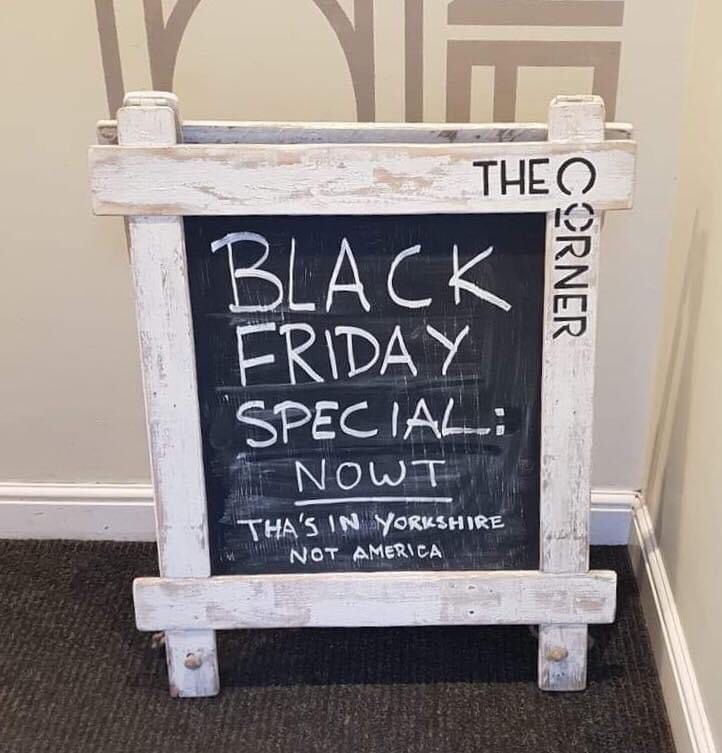 THE CORNER
BLACK
FRIDAY
SPECIAL:
NOWT
THA'S IN YORKSHIRE
NOT AMERICA